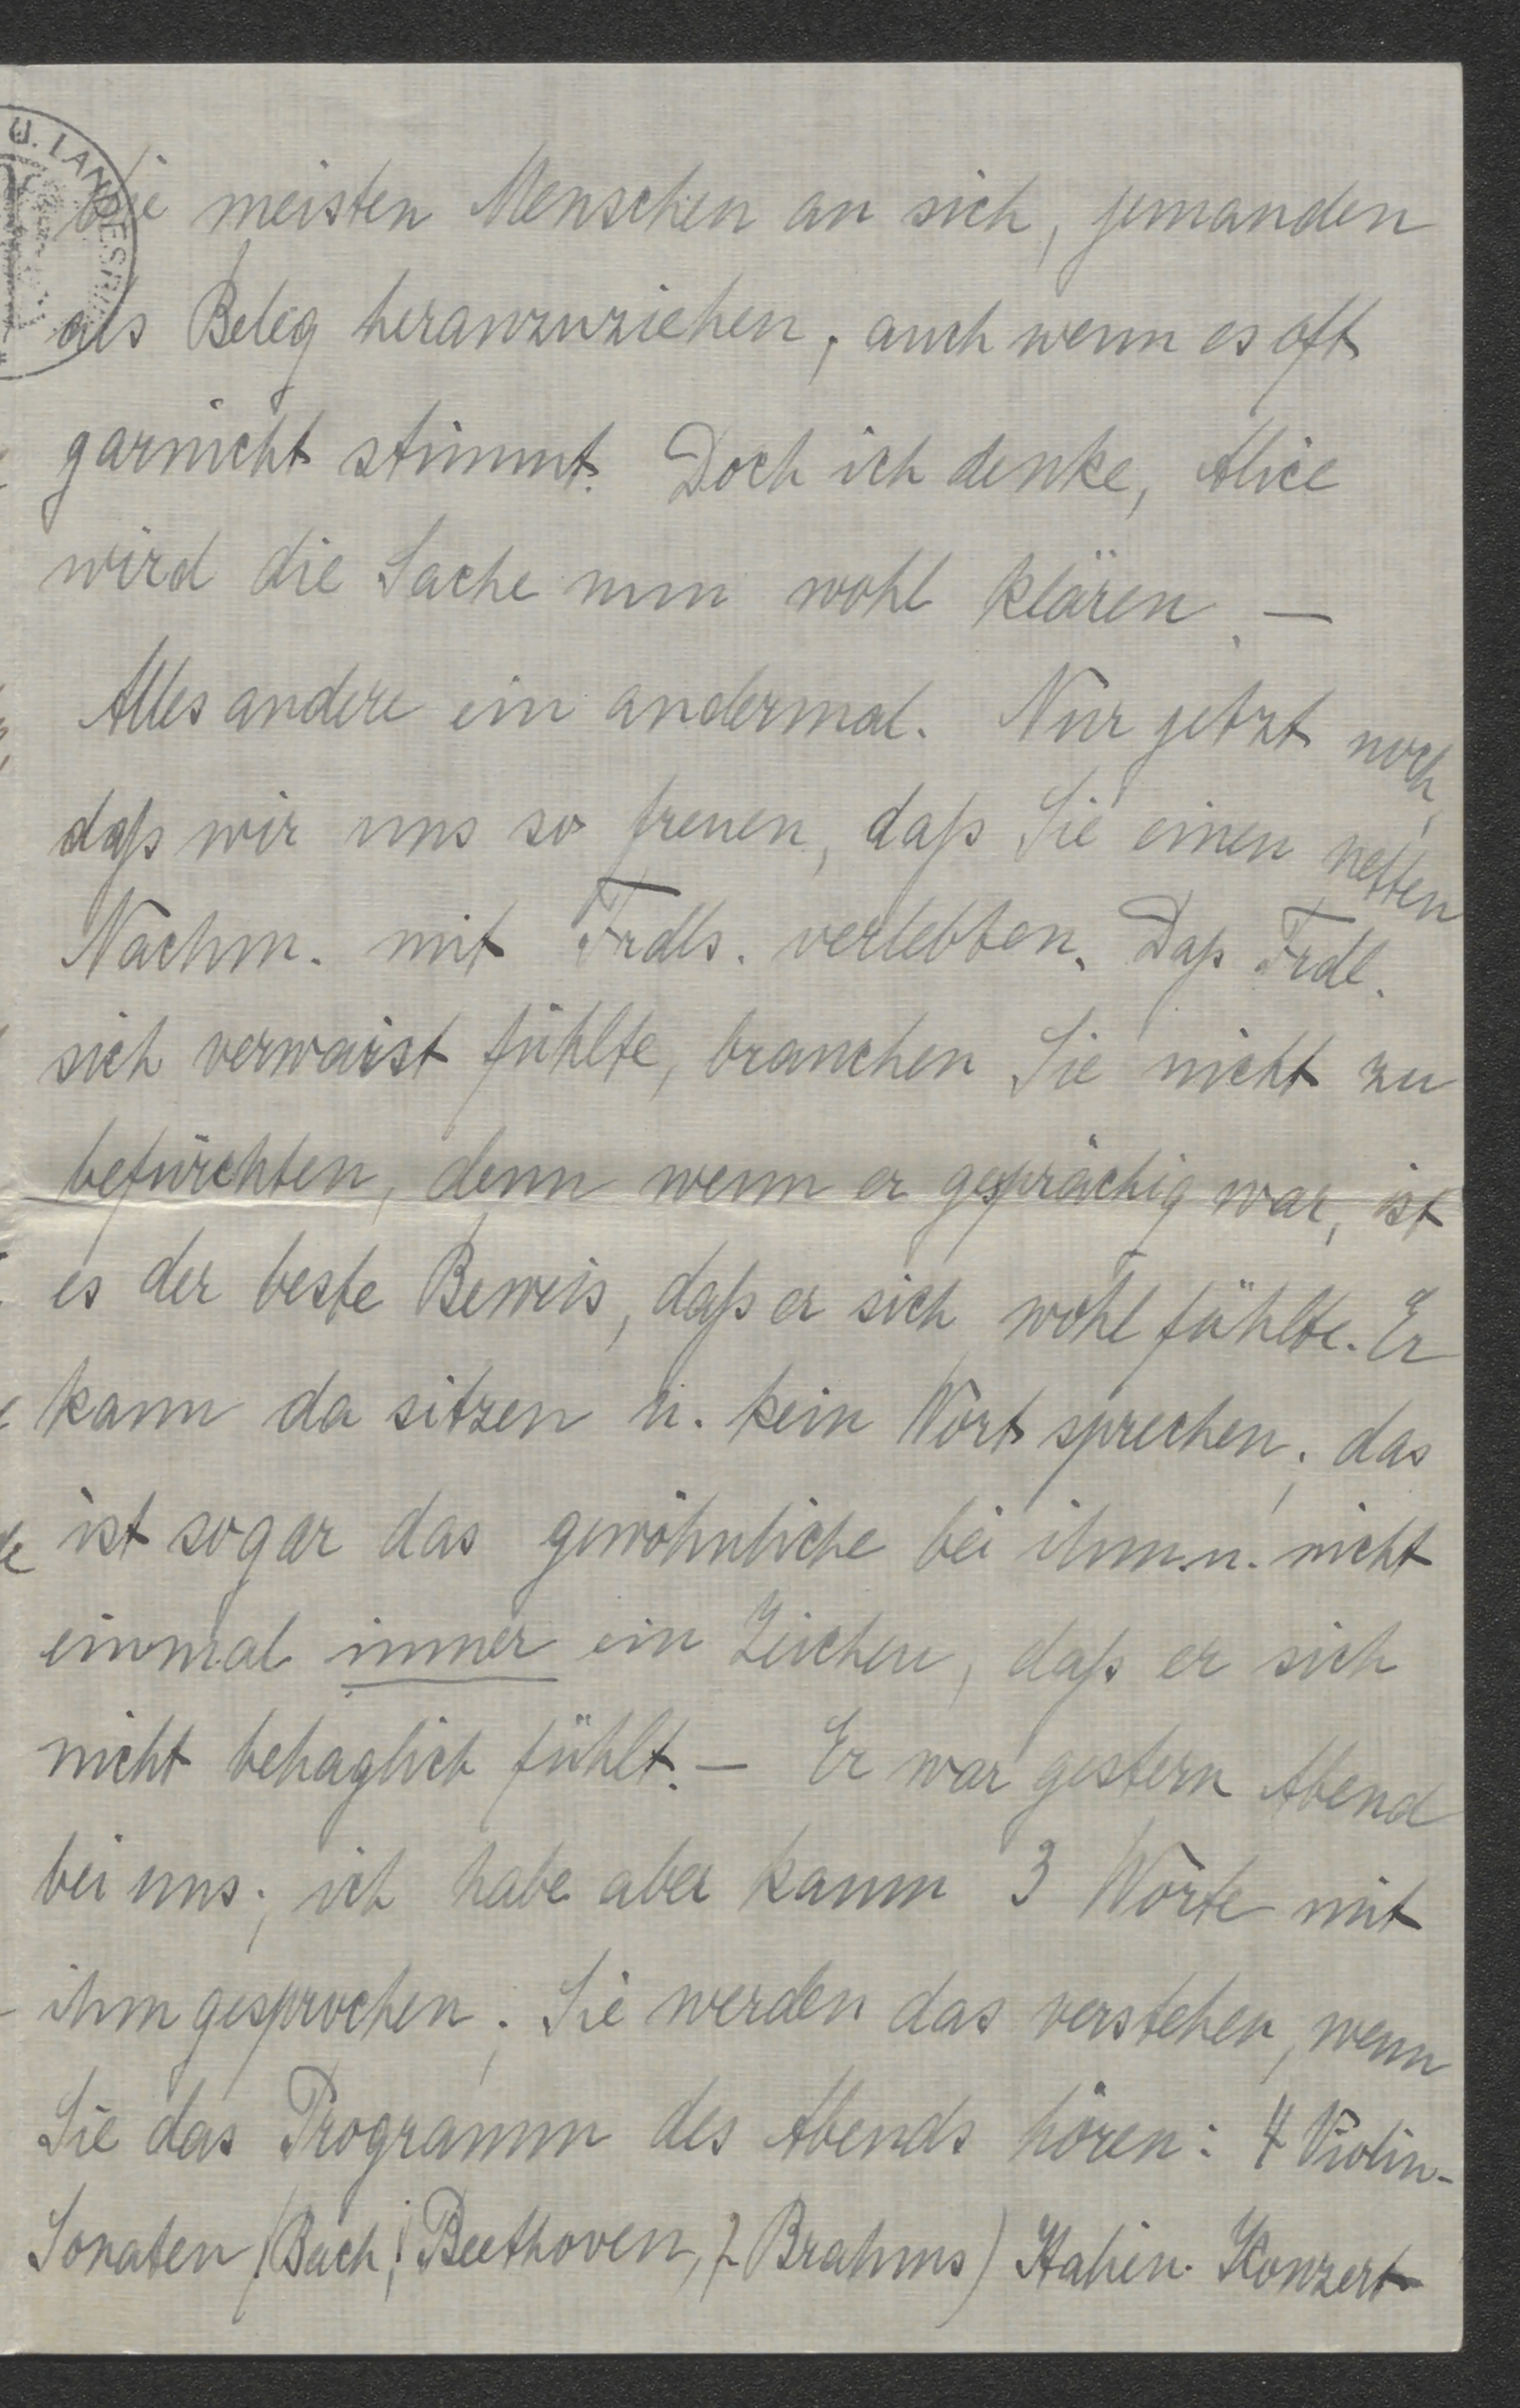 U. LANDESBI
die meisten Menschen an sich, jemanden
als Beleg heranzuziehen, auch wenn es oft
garnicht stimmt. Doch ich denke, Alice
wird die Sache nun wohl klären. —
Alles andere ein andermal. Nur jetzt noch,
daß wir uns so freuen, daß Sie einen netten
Nachm. mit Frdls. verlebten. Daß Frdl.
sich verwaist fühlte, brauchen Sie nicht zu
befürchten, denn wenn er gesprächig war, ist
es der beste Beweis, daß er sich wohl fühlte. Er
kann da sitzen u. kein Wort sprechen; das
ist sogar das gewöhnliche bei ihm u. nicht
einmal immer ein Zeichen, daß er sich
nicht behaglich fühlt. — Er war gestern Abend
bei uns; ich habe aber kaum 3 Worte mit
ihm gesprochen; Sie werden das verstehen, wenn
Sie das Programm des Abends hören: 4 Violin-
Sonaten (Bach, Beethoven, 2 Brahms) Italien. Konzert